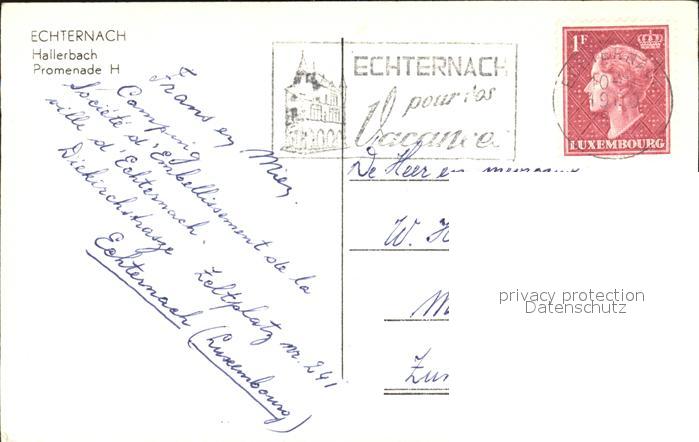 ECHTERNACH
Hallerbach
Promenade H
Frans en Mien.
Camping
Société d'Embellissement de la
ville d'Echternach.
Diekirchstrasze Zeltplatz nr. 241
Echternach (Luxembourg)
ECHTERNACH
pour vos
Vacances
1F
LUXEMBOURG
De Heer en
W. H
privacy protection
Datenschutz